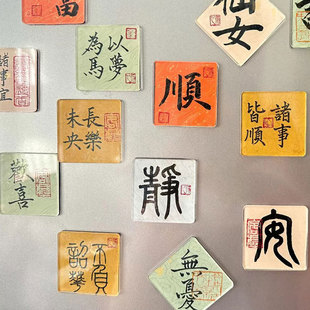 富
仙女
以夢
為馬
諸事宜
順
諸事
皆順
長樂
未央
歡喜
靜
安
不負
韶華
無憂